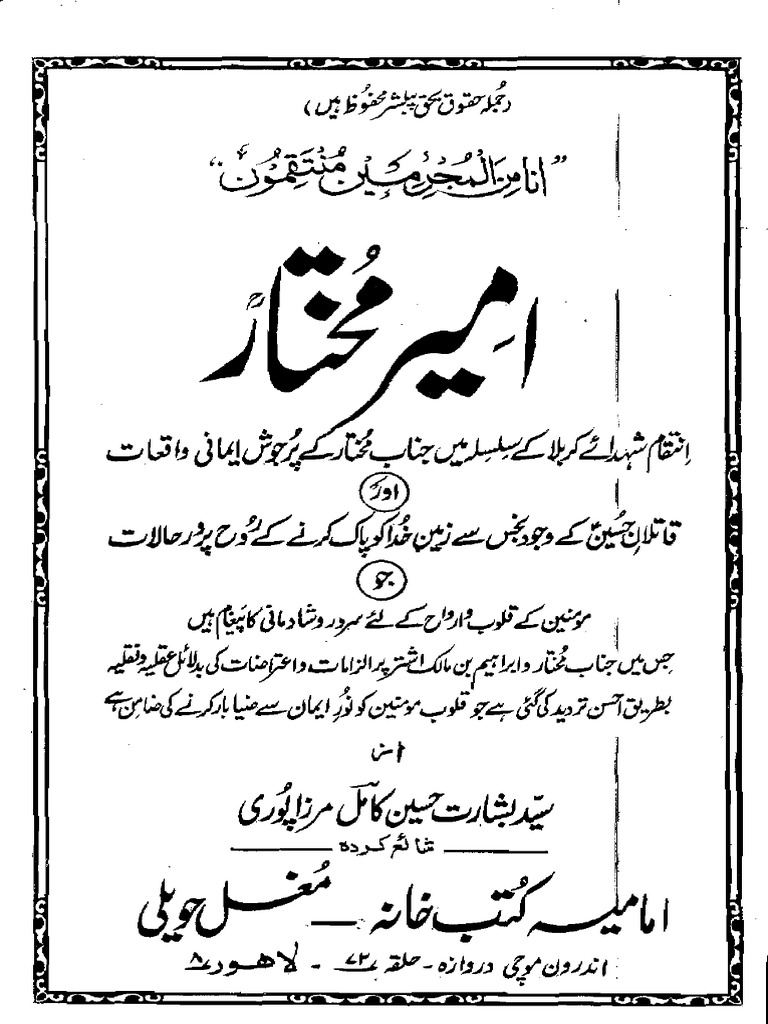 (جملہ حقوق بحق پبلشر محفوظ ہیں)
"انا مِنَ الْمُجْرِمِيْنَ مُنْتَقِمُوْنَ"
امِیر مُختارؒ
اِنتقام شہدائے کربلا کے سِلسِلہ میں جناب مُختار کے پُرجوش ایمانی واقعات
اور
قاتلانِ حُسینؑ کے وجودِ نجس سے زمینِ خُدا کو پاک کرنے کے رُوح پرور حالات
جو
مؤمنین کے قلوب و ارواح کے لئے سرور و شادمانی کا پیغام ہیں
جس میں جناب مُختار و ابراہیم بن مالک اشتر پر الزامات و اعتراضات کی بدلائل عقلیہ و نقلیہ
بطریق احسن تردید کی گئی ہے جو قلوب مؤمنین کو نُورِ ایمان سے ضیا بار کرنے کی ضامن ہے
از
سیّد بشارت حسین کامل مرزا پُوری
شائع کردہ
امامیہ کُتب خانہ — مُغل حویلی
اندرون موچی دروازہ - حلقہ ۷۲ - لاہور ۸